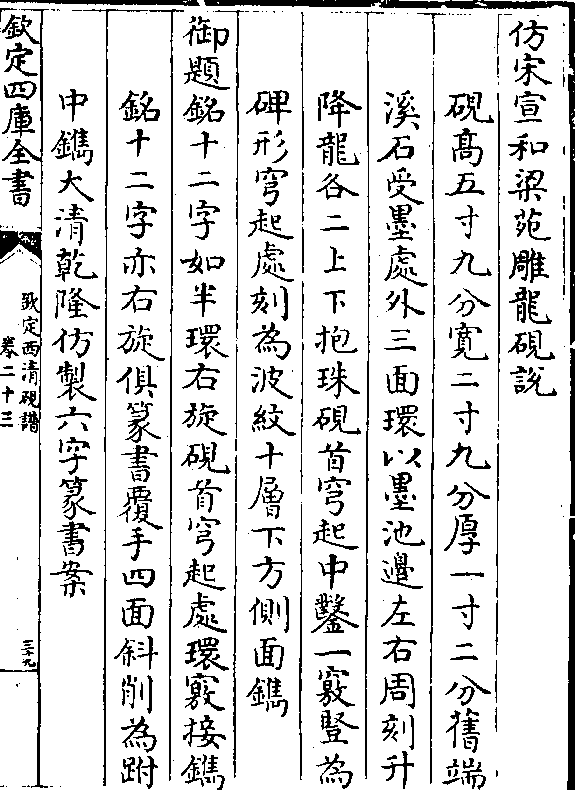 仿宋宣和梁苑雕龍硯說
硯髙五寸九分寛二寸九分厚一寸二分舊端
溪石受墨處外三面環以墨池邊左右周刻升
降龍各二上下抱珠硯首穹起中鑿一竅豎為
碑形穹起處刻為波紋十層下方側面鐫
御題銘十二字如半環右旋硯首穹起處環竅接鐫
銘十二字亦右旋俱篆書覆手四面斜削為跗
中鐫大清乾隆仿製六字篆書案
欽定四庫全書
欽定西清硯譜
卷二十三
三十九